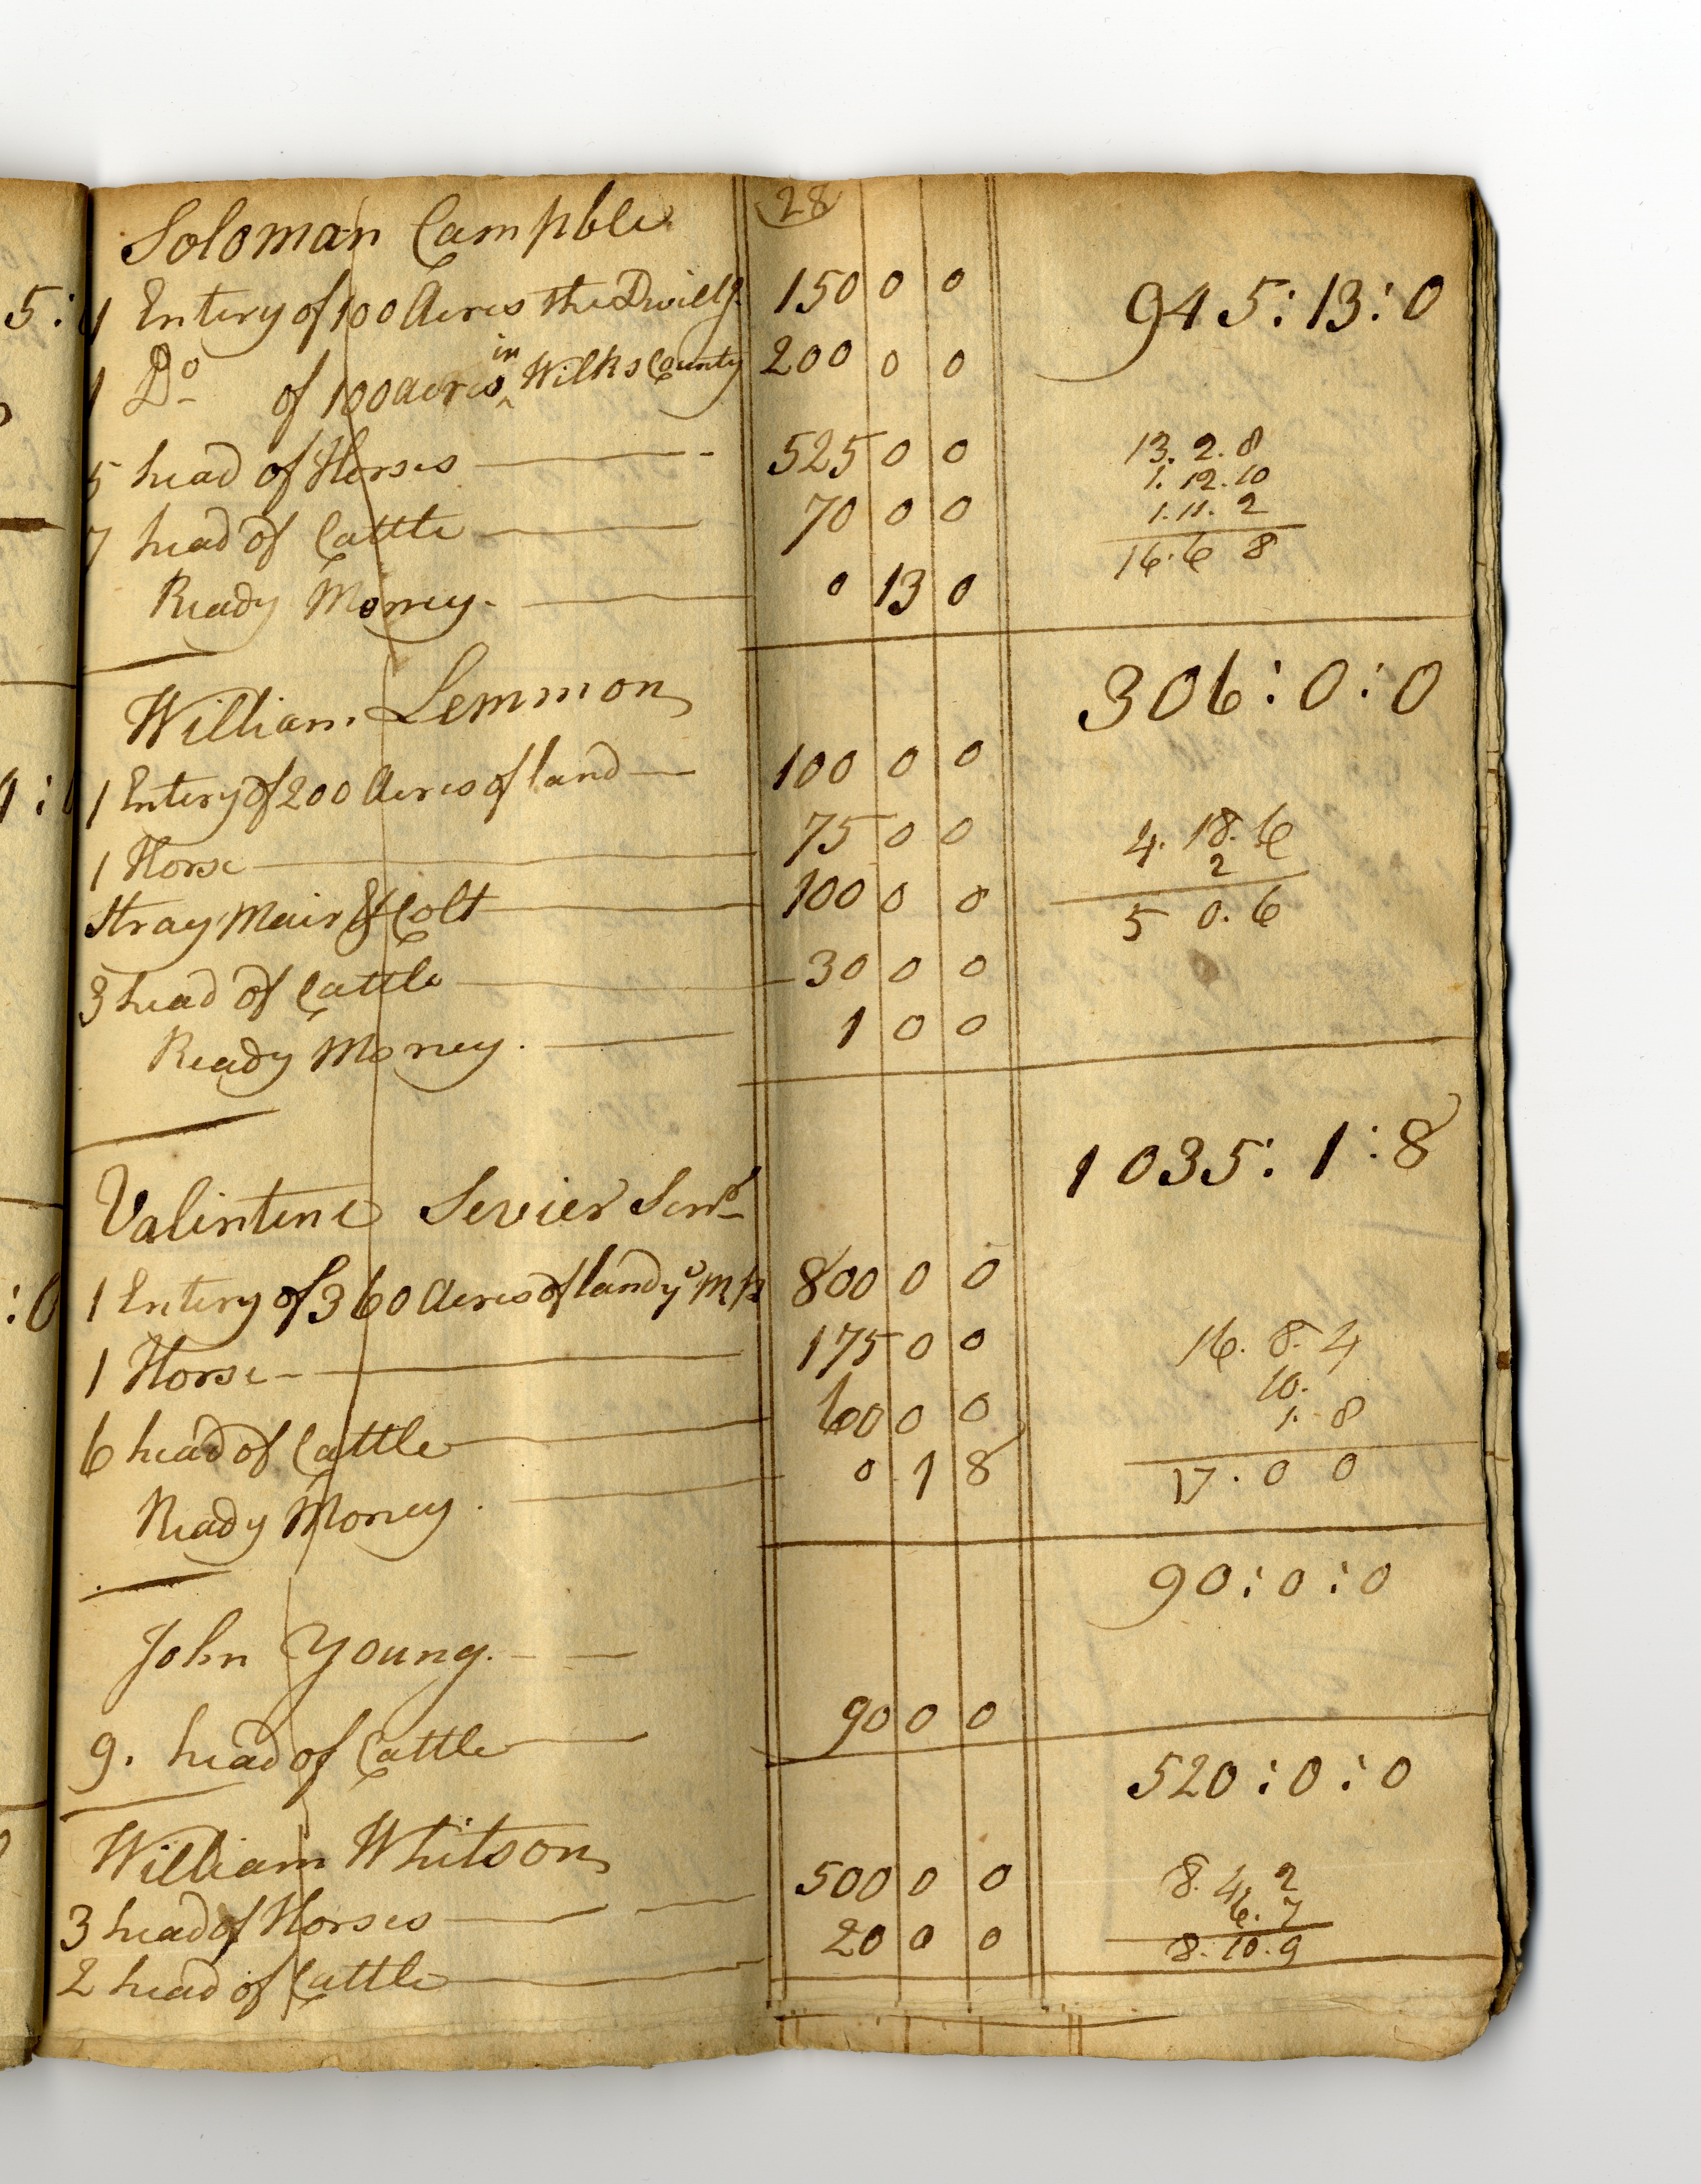 28
Soloman Campble
1 Entery of 100 Acres the Dwillg 150 0 0 945:13:0
1 Do of 100 acres in Wilks County 200 0 0
5 head of Horses 525 0 0 13. 2. 8
1. 12. 10
7 head of Cattle 70 0 0 1. 11. 2
16. 6 8
Ready Money. 0 13 0
William Lemmon 306:0:0
1 Entery of 200 Acres of land 100 0 0
1 Horse 75 0 0 4. 18. 6
2
Stray Mair & Colt 100 0 0 5 0. 6
3 head of Cattle 30 0 0
Ready Money. 1 0 0
Valintine Sevier Senr 1035:1:8
1 Entery of 360 Acres of land ye 800 0 0
1 Horse 175 0 0 16. 8. 4
10.
6 head of Cattle 60 0 0 1. 8
Ready Money. 0 1 8 17. 0 0
John Young. 90:0:0
9. head of Cattle 90 0 0
William Whitson 520:0:0
3 head of Horses 500 0 0 8. 4. 2
6. 7
2 head of Cattle 20 0 0 8. 10. 9